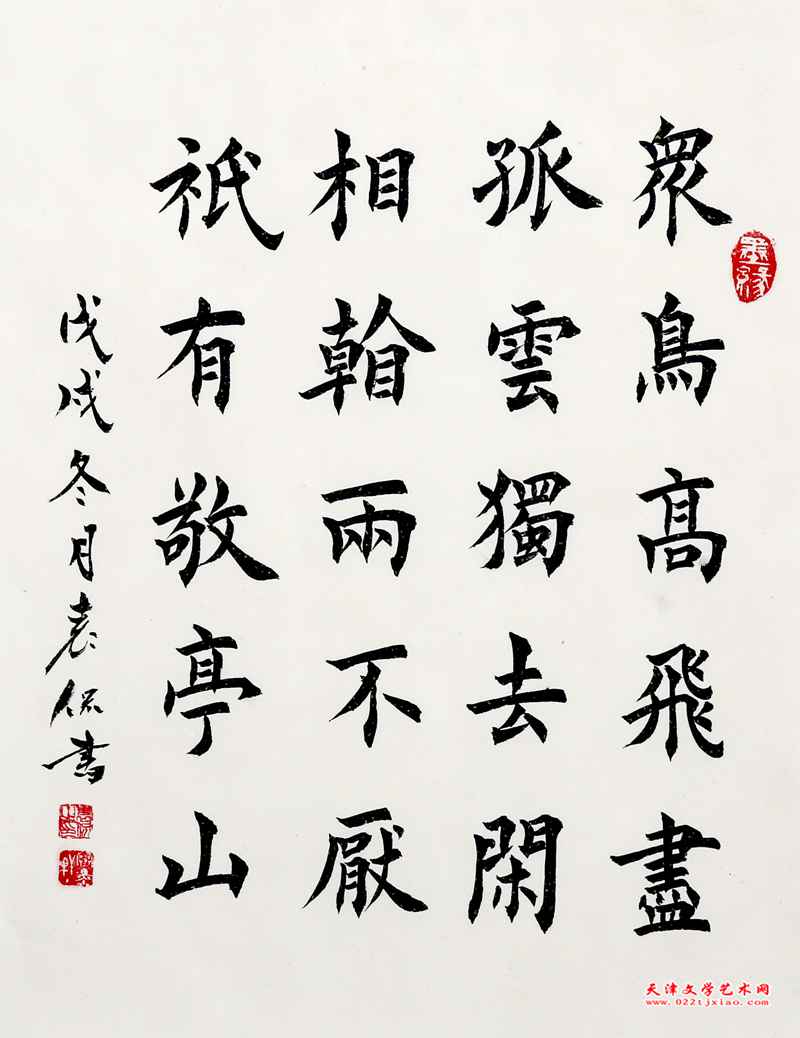 眾鳥髙飛盡
孤雲獨去閑
相看兩不厭
祇有敬亭山
戊戌冬月袁侃書
墨缘
天津文学艺术网
www.022tjxiao.com